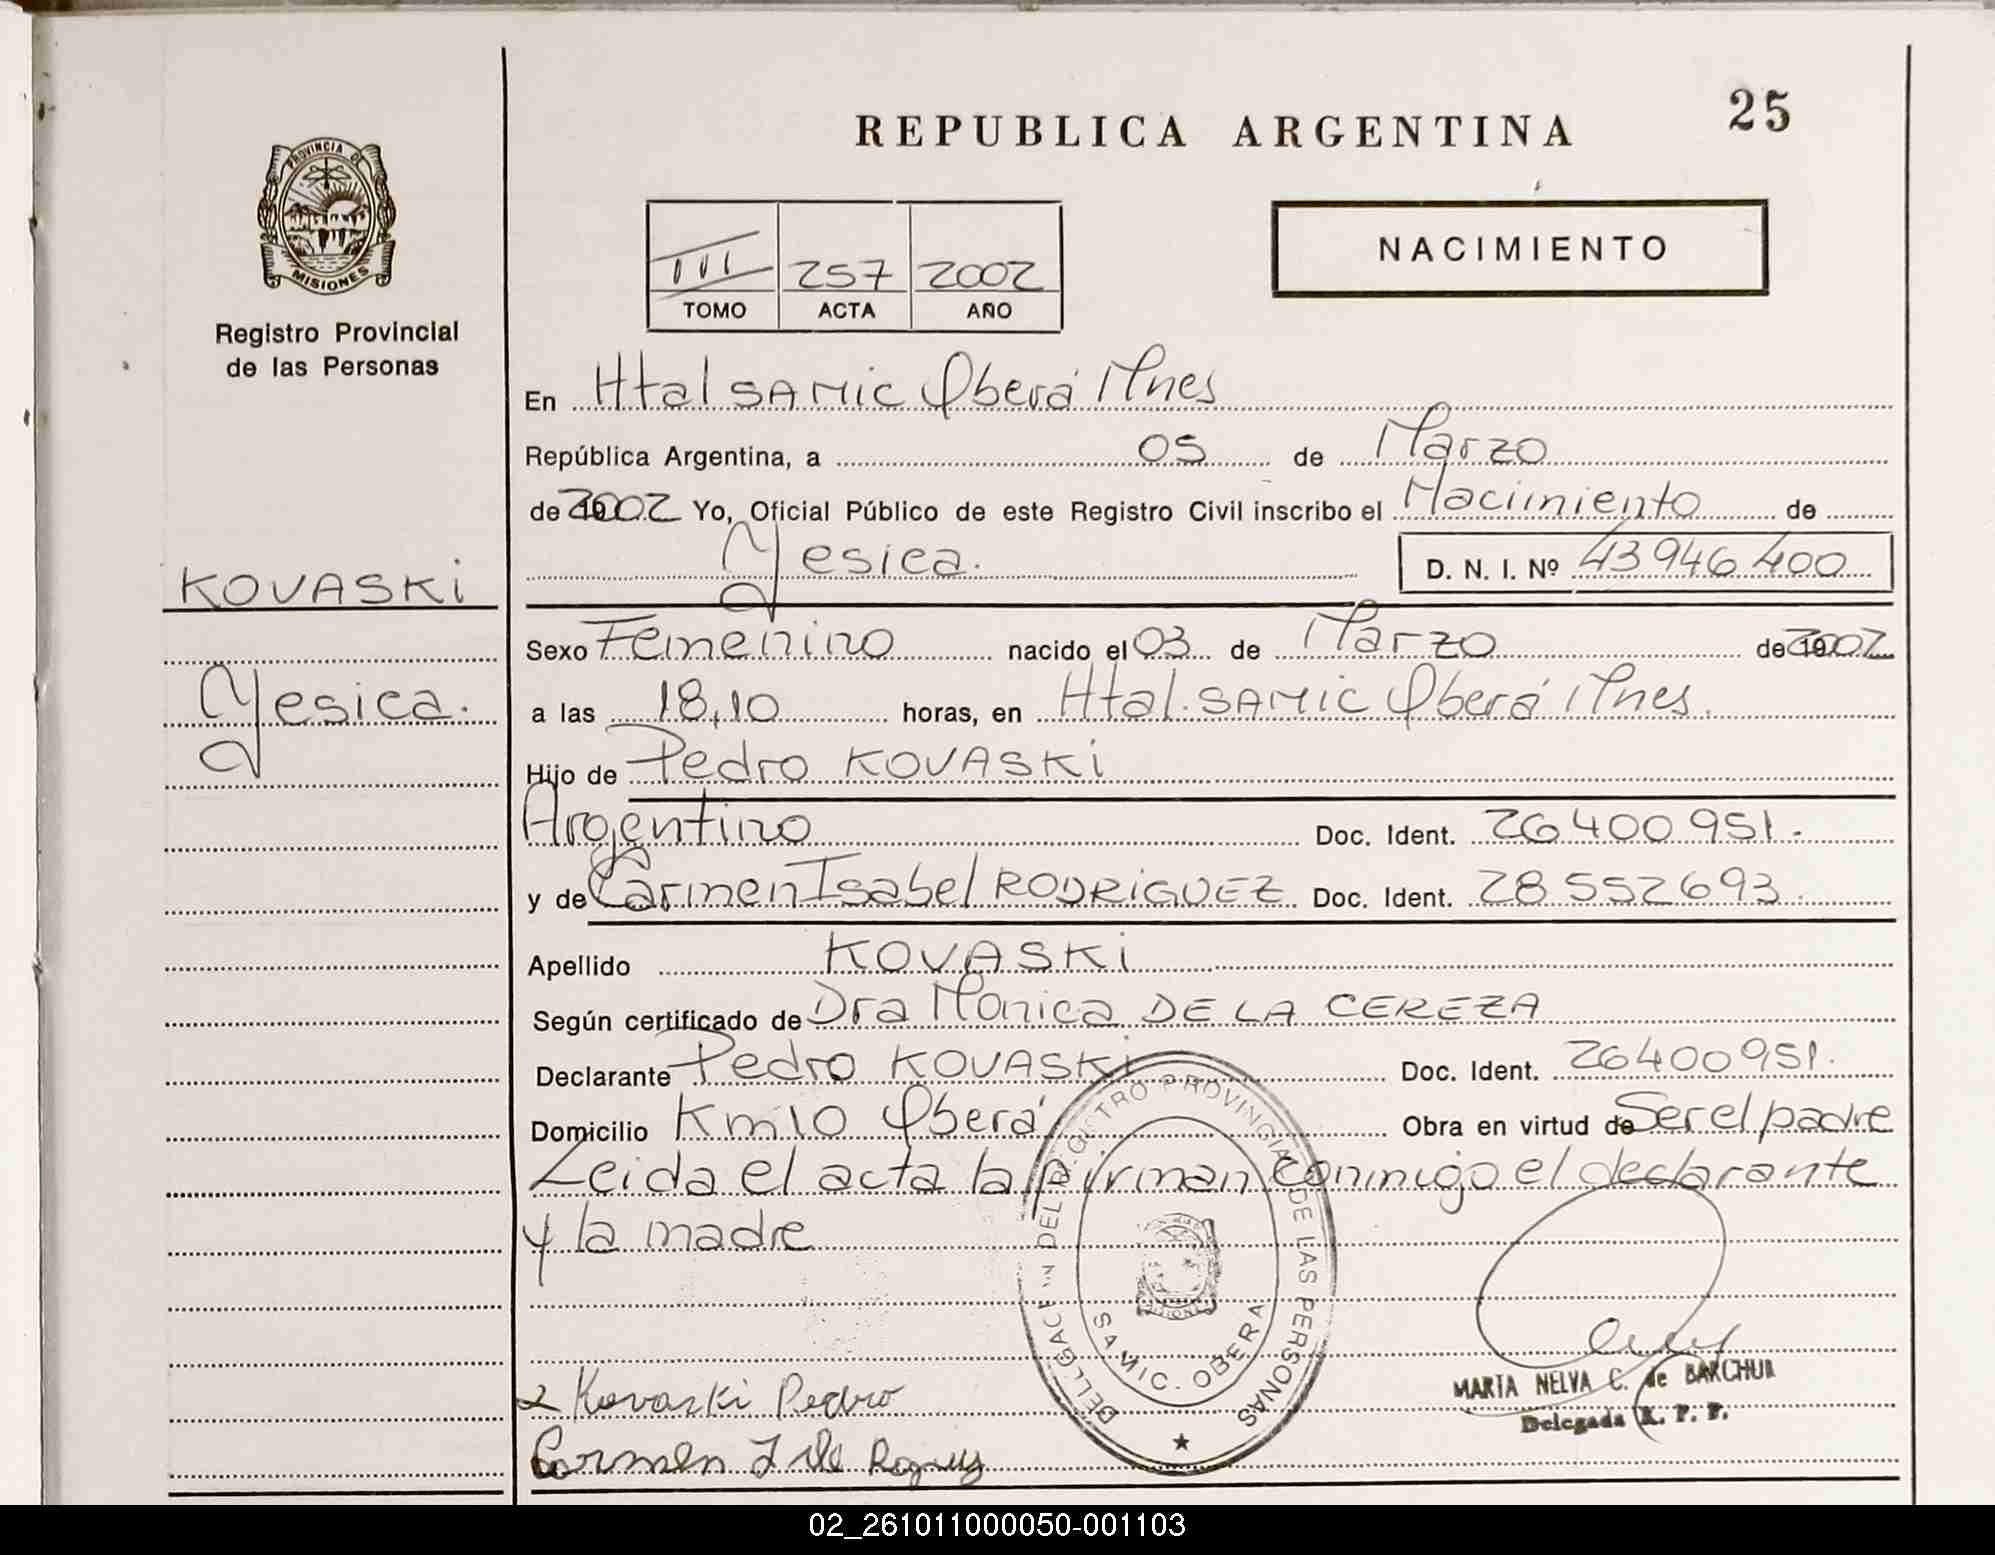 REPUBLICA ARGENTINA
25
PROVINCIA DE
MISIONES
Registro Provincial
de las Personas
III 257 2002
TOMO ACTA AÑO
NACIMIENTO
En Htal SAMIC Oberá Mnes
República Argentina, a 05 de Marzo
de 2002 Yo, Oficial Público de este Registro Civil inscribo el Nacimiento de
Yesica. D. N. I. Nº 43946400
KOVASKi
Yesica.
Sexo Femenino nacido el 03 de Marzo de 2002
a las 18,10 horas, en Htal. SAMIC Oberá Mnes.
Hijo de Pedro KOVASKi
Argentino Doc. Ident. 26400951.
y de Carmen Isabel RODRiGUEZ Doc. Ident. 28552693
Apellido KOVASKi
Según certificado de Dra Monica DE LA CEREZA
Declarante Pedro KOVASKi Doc. Ident. 26400951.
Domicilio Km 10 Oberá Obra en virtud de Ser el padre
Leida el acta la firman conmigo el declarante
y la madre
DEL REGISTRO PROVINCIAL DE LAS PERSONAS
SAMIC. OBERA
Kovaski Pedro
Carmen I
MARIA NELVA C. de BARCHUK
Delegada R. P. P.
02_261011000050-001103